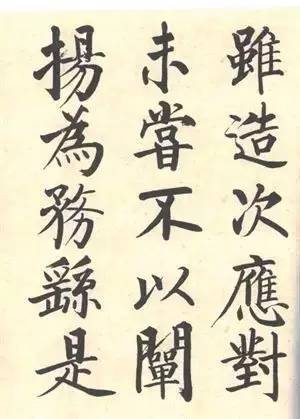 雖造次應對
未嘗不以闡
揚為務繇是